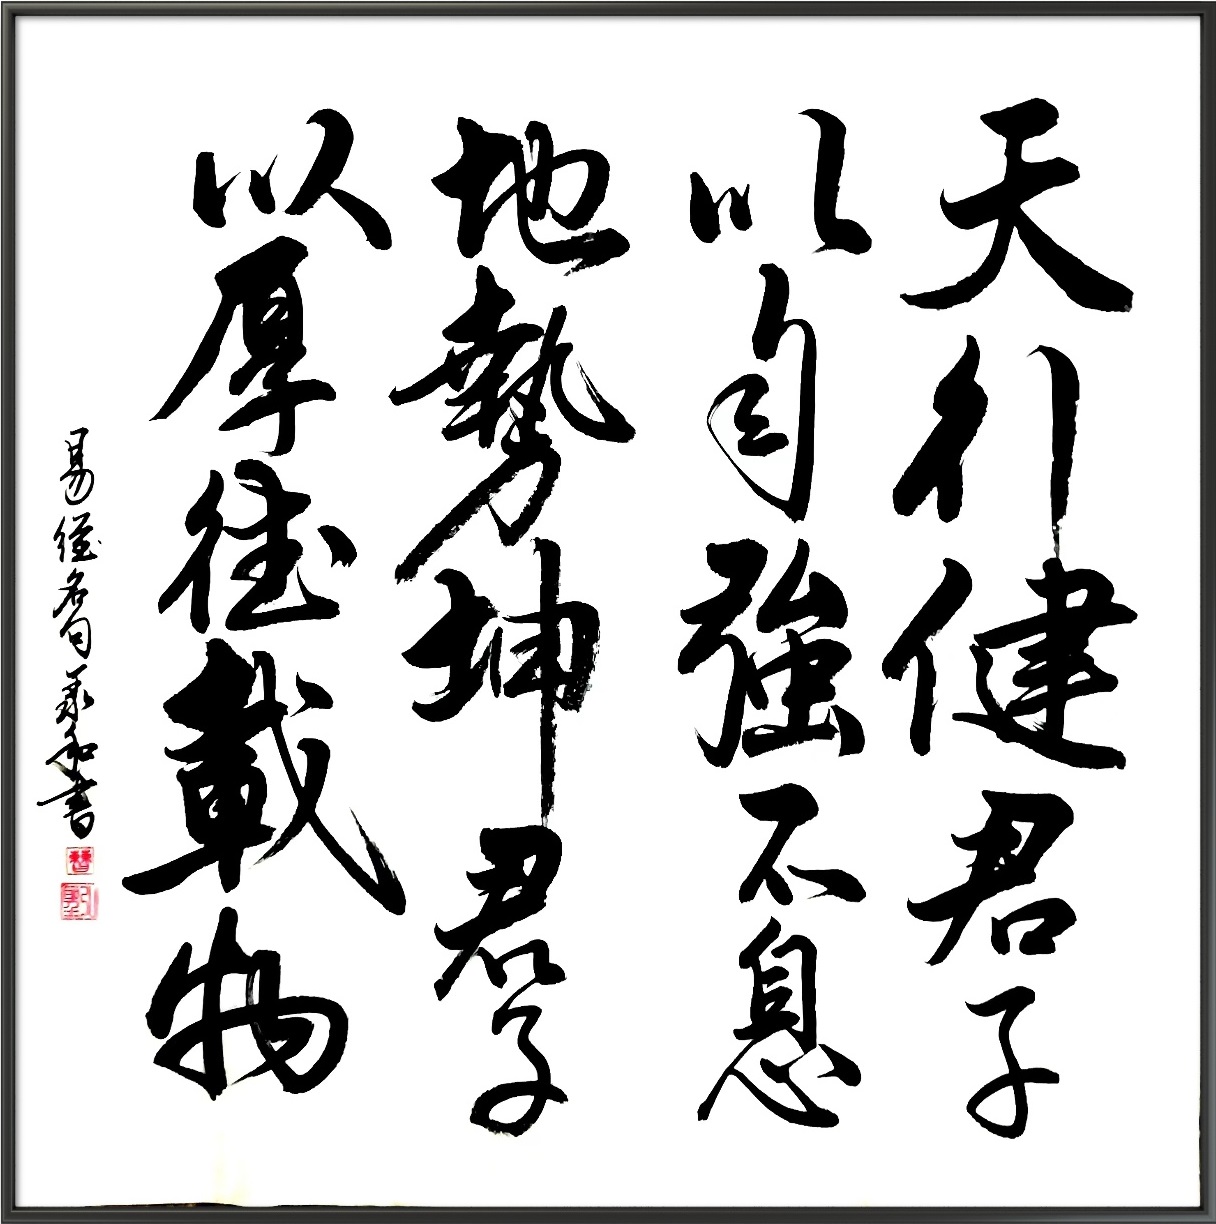 天行健君子
以自強不息
地勢坤君子
以厚德載物
易經名句義和書